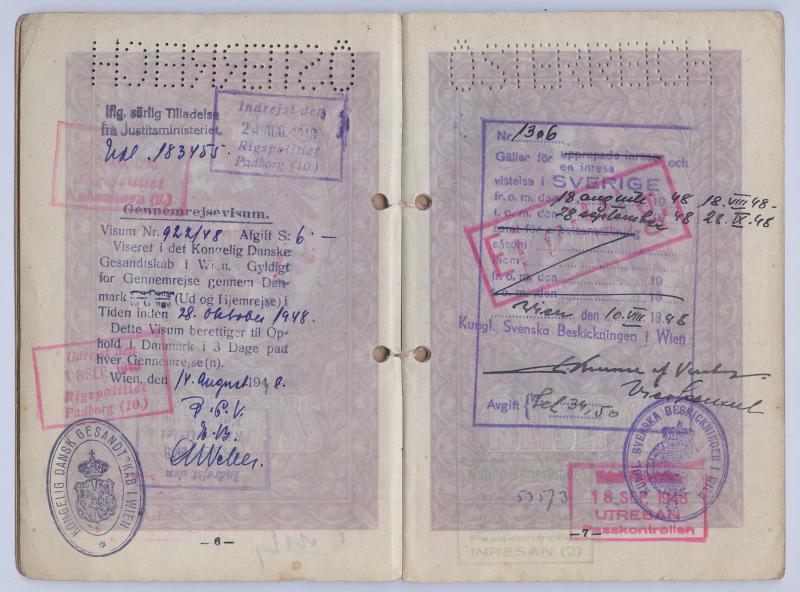 ÖSTERREICH
iflg. särlig Tilladelse
fra Justitsministeriet.
Udl. 183455.
Indrejst den
24 AUG. 1948
Rigspolitiet
Padborg (10.)
Rigspolitiet
København (9.)
Gennemrejsevisum.
Visum Nr. 922/48 Afgift S: 6.—
Viseret i det Kongelig Danske
Gesandtskab i Wien. Gyldigt
for Gennemrejse gennem Dan-
mark (Ud og Hjemrejse) i
Tiden inden 28. oktober 1948.
Dette Visum berettiger til Op-
hold i Danmark i 3 Dage paa
hver Gennemrejse(n).
Wien, den 14. August 1948.
Udrejst den
18 SEP. 1948
Rigspolitiet
Padborg (10.)
P. C. V.
E. B.
Indrejst den
KONGELIG DANSK GESANDTSKAB I WIEN
—6—
ÖSTERREICH
Nr. 1306
Gäller för upprepade inresor och
en inresa
vistelse i SVERIGE
fr. o. m. den 18 augusti 1948 18.VIII 48.
t. o. m. den 28 september 48 28.IX.48
samt för
såsom
inom
fr. o. m. den 19
t. o. m. den 19
Wien den 10.VIII 1948
Kungl. Svenska Beskickningen i Wien
Visakonsul
Avgift Sch 34,50
KUNGL. SVENSKA BESKICKNINGEN I WIEN
53573
18 SEP. 1948
UTRESAN
Passkontrollen
Passkontrollen
INRESAN (2)
—7—